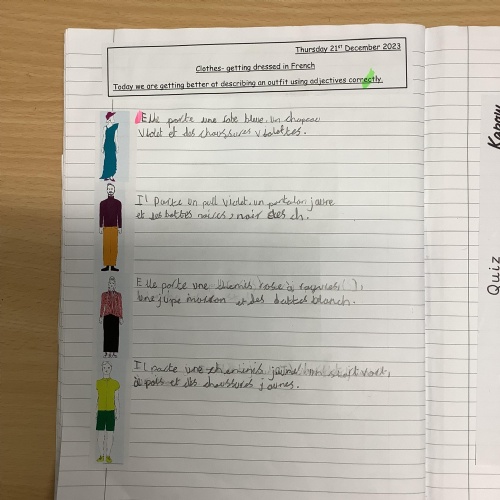 Thursday 21st December 2023
Clothes- getting dressed in French
Today we are getting better at describing an outfit using adjectives correctly.
Elle porte une robe bleue, un chapeau
violet et des chaussures violettes.
Il porte un pull violet, un pantalon jaune
et des bottes noires, noir des ch.
Elle porte une rose à rayures ( ),
une jupe marron et des bottes blanch.
Il porte une jaune vert,
à pois et des chaussures jaunes.
Kapow
Quiz